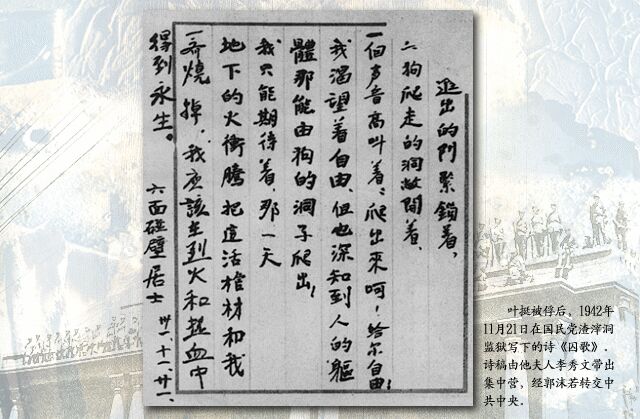 進出的門緊鎖着，
狗爬走的洞敞開着，
一個声音高叫着：爬出來呵！給尔自由！
我渴望着自由，但也深知到人的軀
體那能由狗的洞子爬出！
我只能期待着，那一天
地下的火衝騰把這活棺材和我
一齊燒掉，我應該在烈火和熱血中
得到永生。
六面碰壁居士 卅一、十一、廿一、
叶挺被俘后，1942年
11月21日在国民党渣滓洞
监狱写下的诗《囚歌》．
诗稿由他夫人李秀文带出
集中营，经郭沫若转交中
共中央．